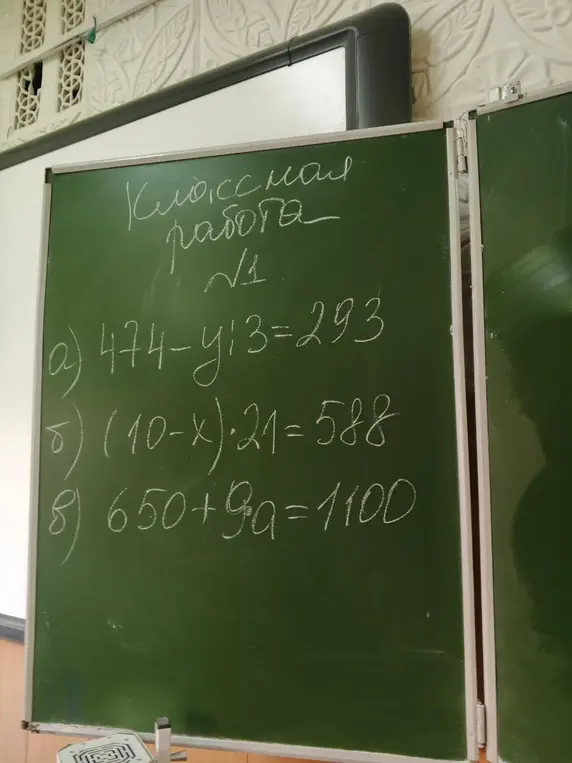 Классная
работа
№1
а) 474-у:3=293
б) (10-х)·21=588
в) 650+9а=1100